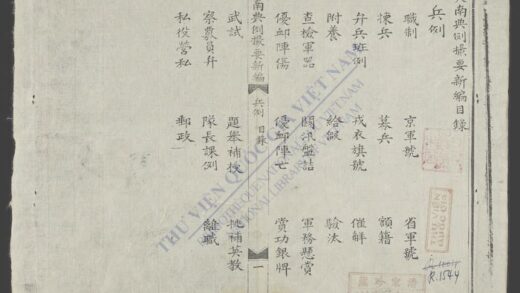 南典例撮要新編目錄
兵例
職制 京軍號 省軍號
揀兵 募兵 額籍
弁兵班例 戎衣旗號 催解
附養 給 驗汰
查檢軍器 關汛盤詰 軍務懸賞
優邺陣傷 優邺陣亡 賞功銀牌
南典例撮要新編 兵例 目錄 一
武試 題舉補授 挑補英教
察農員弁 隊長課例 離職
私役營私 郵政
THƯ VIỆN QUỐC GIA VIỆT NAM
NATIONAL LIBRARY OF VIETNAM
R.1544